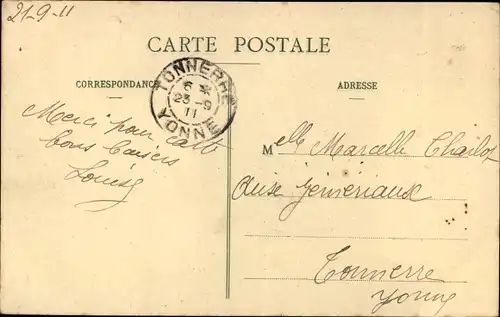 21-9-11
CARTE POSTALE
CORRESPONDANCE
ADRESSE
TONNERRE
6
23-9
11
YONNE
Merci pour carte
bons baisers
Louise
Melle Marcelle
Tonnerre
Yonne